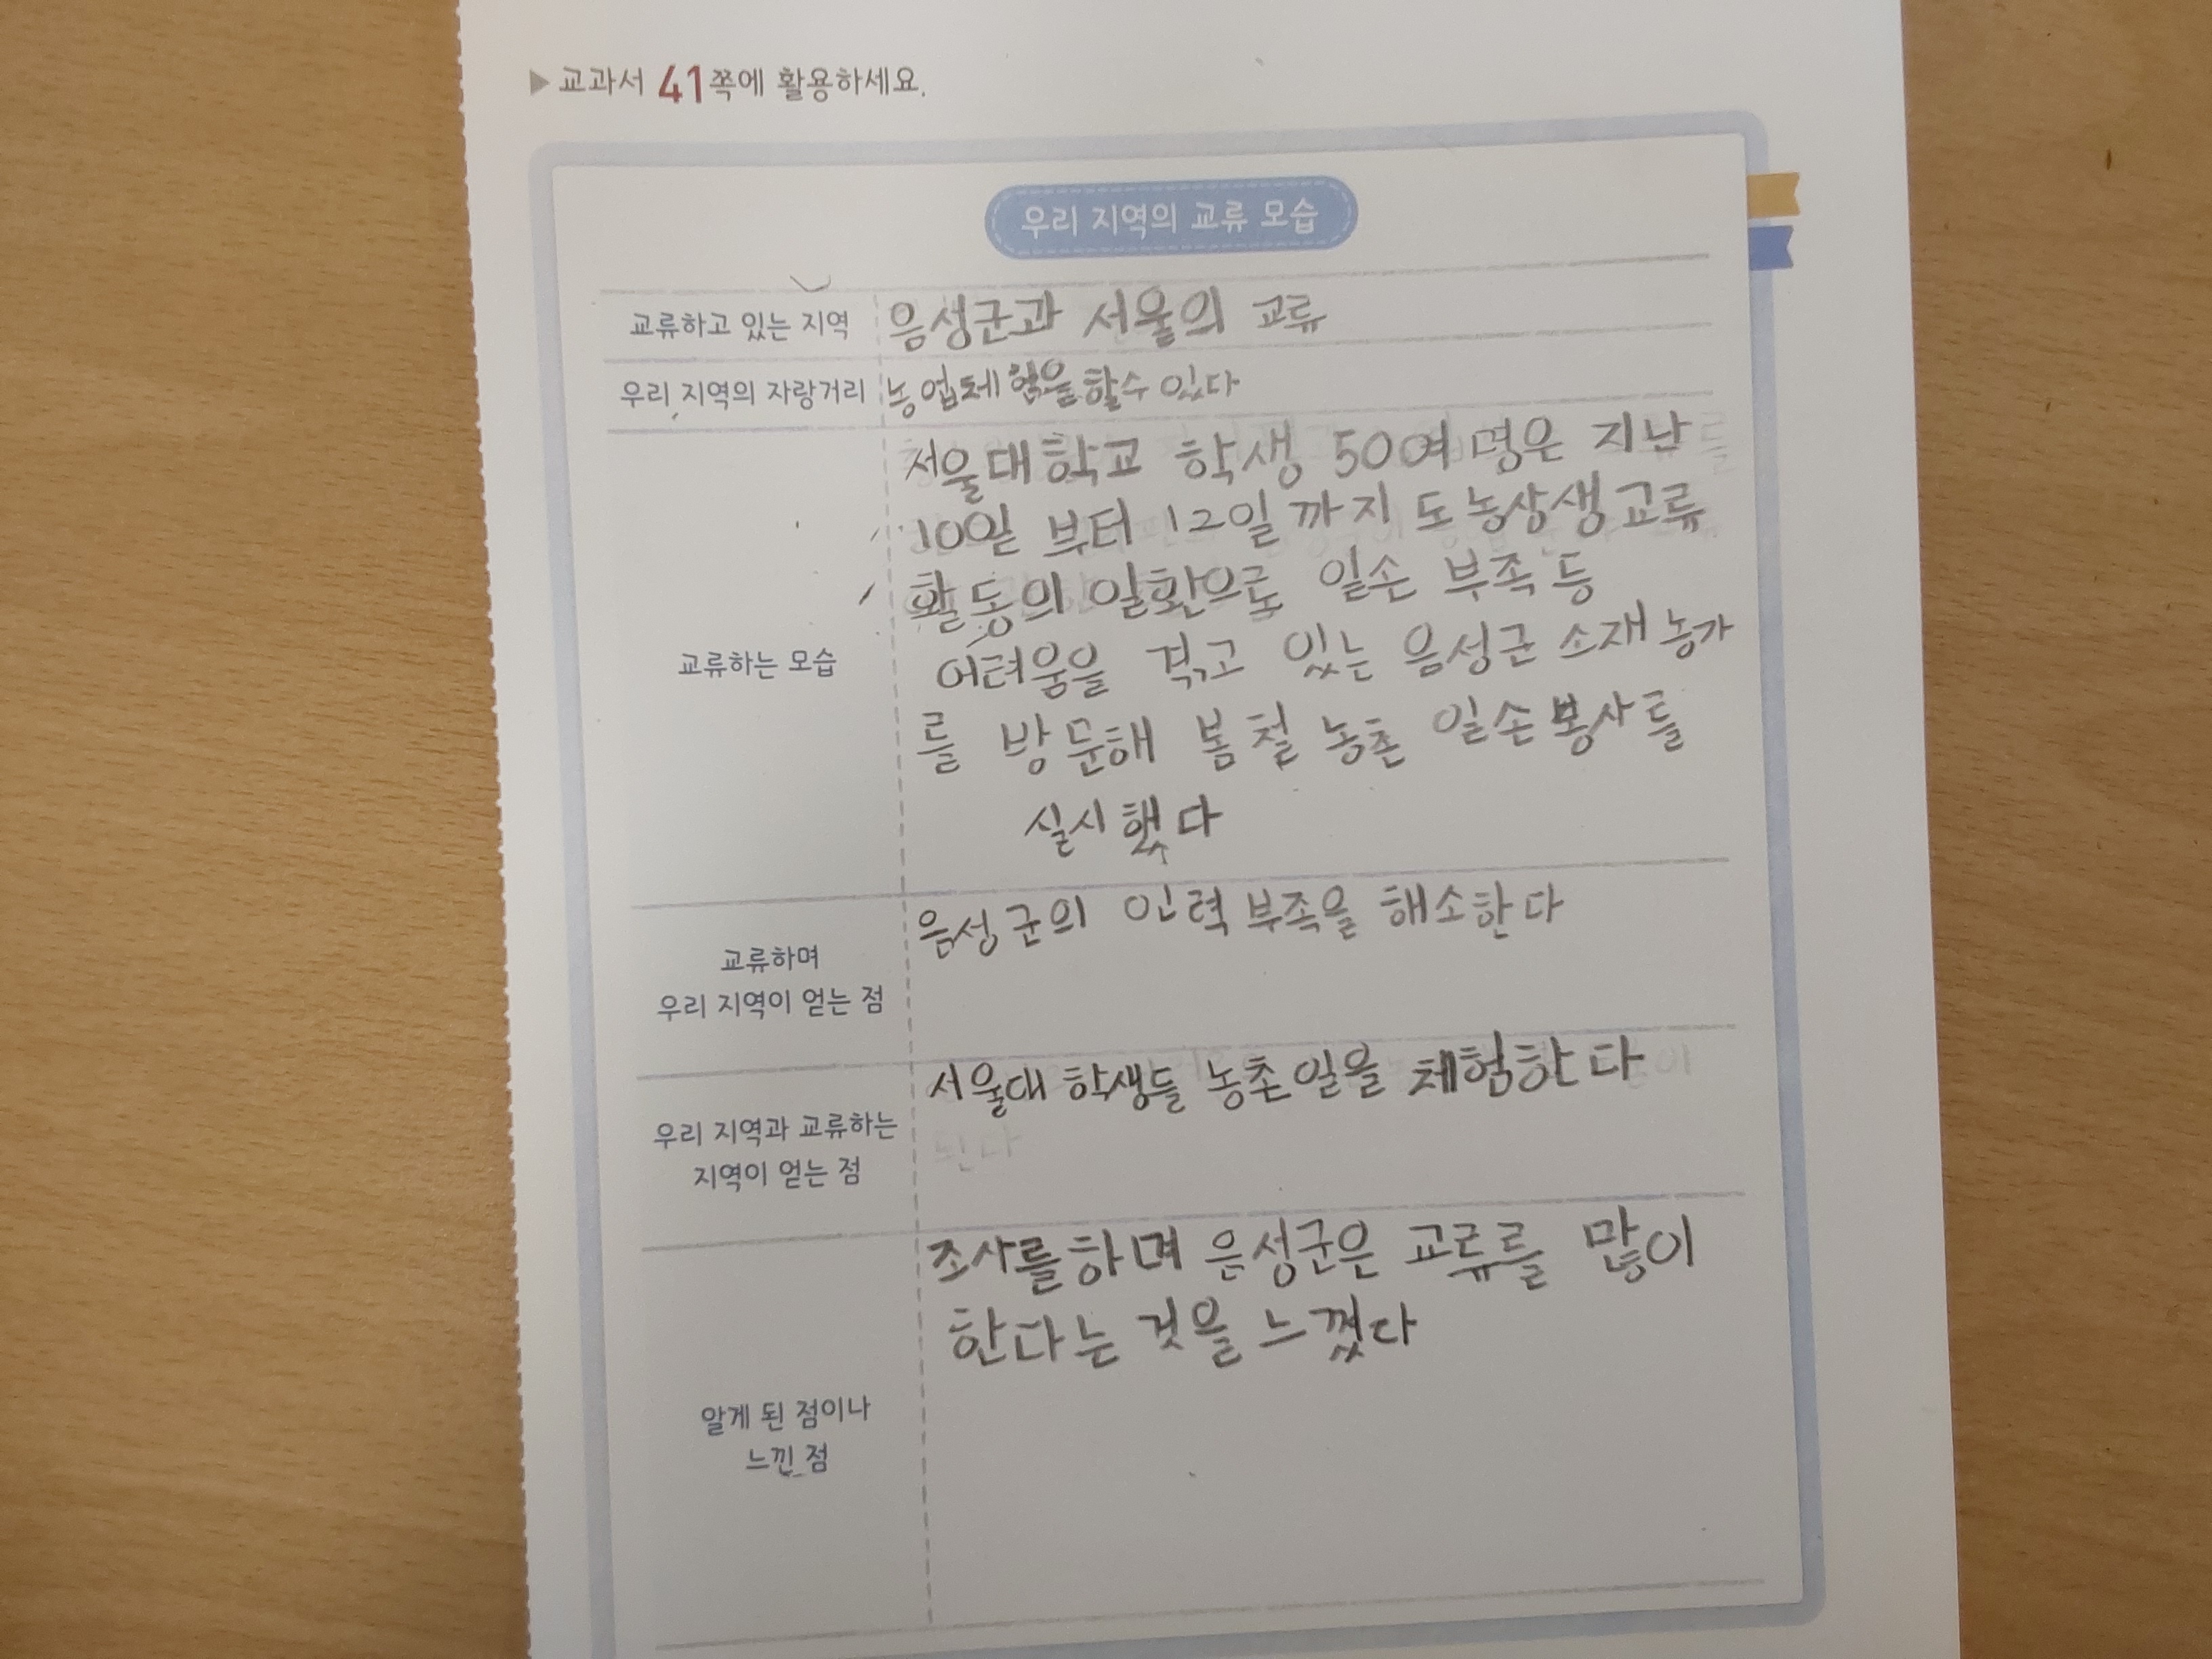 ▶교과서 41쪽에 활용하세요.
우리 지역의 교류 모습
교류하고 있는 지역
음성군과 서울의 교류
우리 지역의 자랑거리
농업체험을할수 있다
교류하는 모습
서울대학교 학생 50여명은 지난
10일 부터 12일까지 도농상생교류
활동의 일환으로 일손 부족 등
어려움을 겪고 있는 음성군 소재 농가
를 방문해 봄철 농촌 일손봉사를
실시했다
교류하며
우리 지역이 얻는 점
음성군의 인력부족을 해소한다
우리 지역과 교류하는
지역이 얻는 점
서울대 학생들 농촌일을 체험한다
알게 된 점이나
느낀 점
조사를하며 음성군은 교류를 많이
한다는 것을 느꼈다